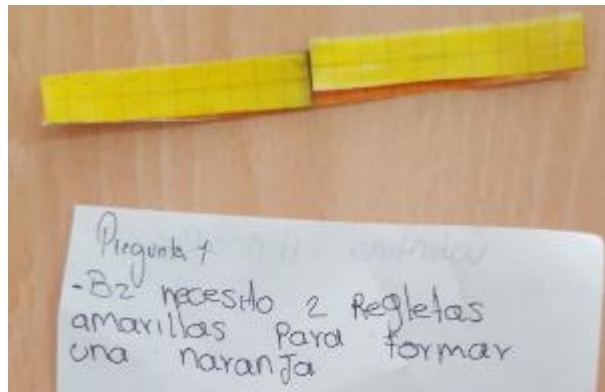 Pregunta 1
-B2 necesito 2 Regletas
amarillas para formar
una naranja